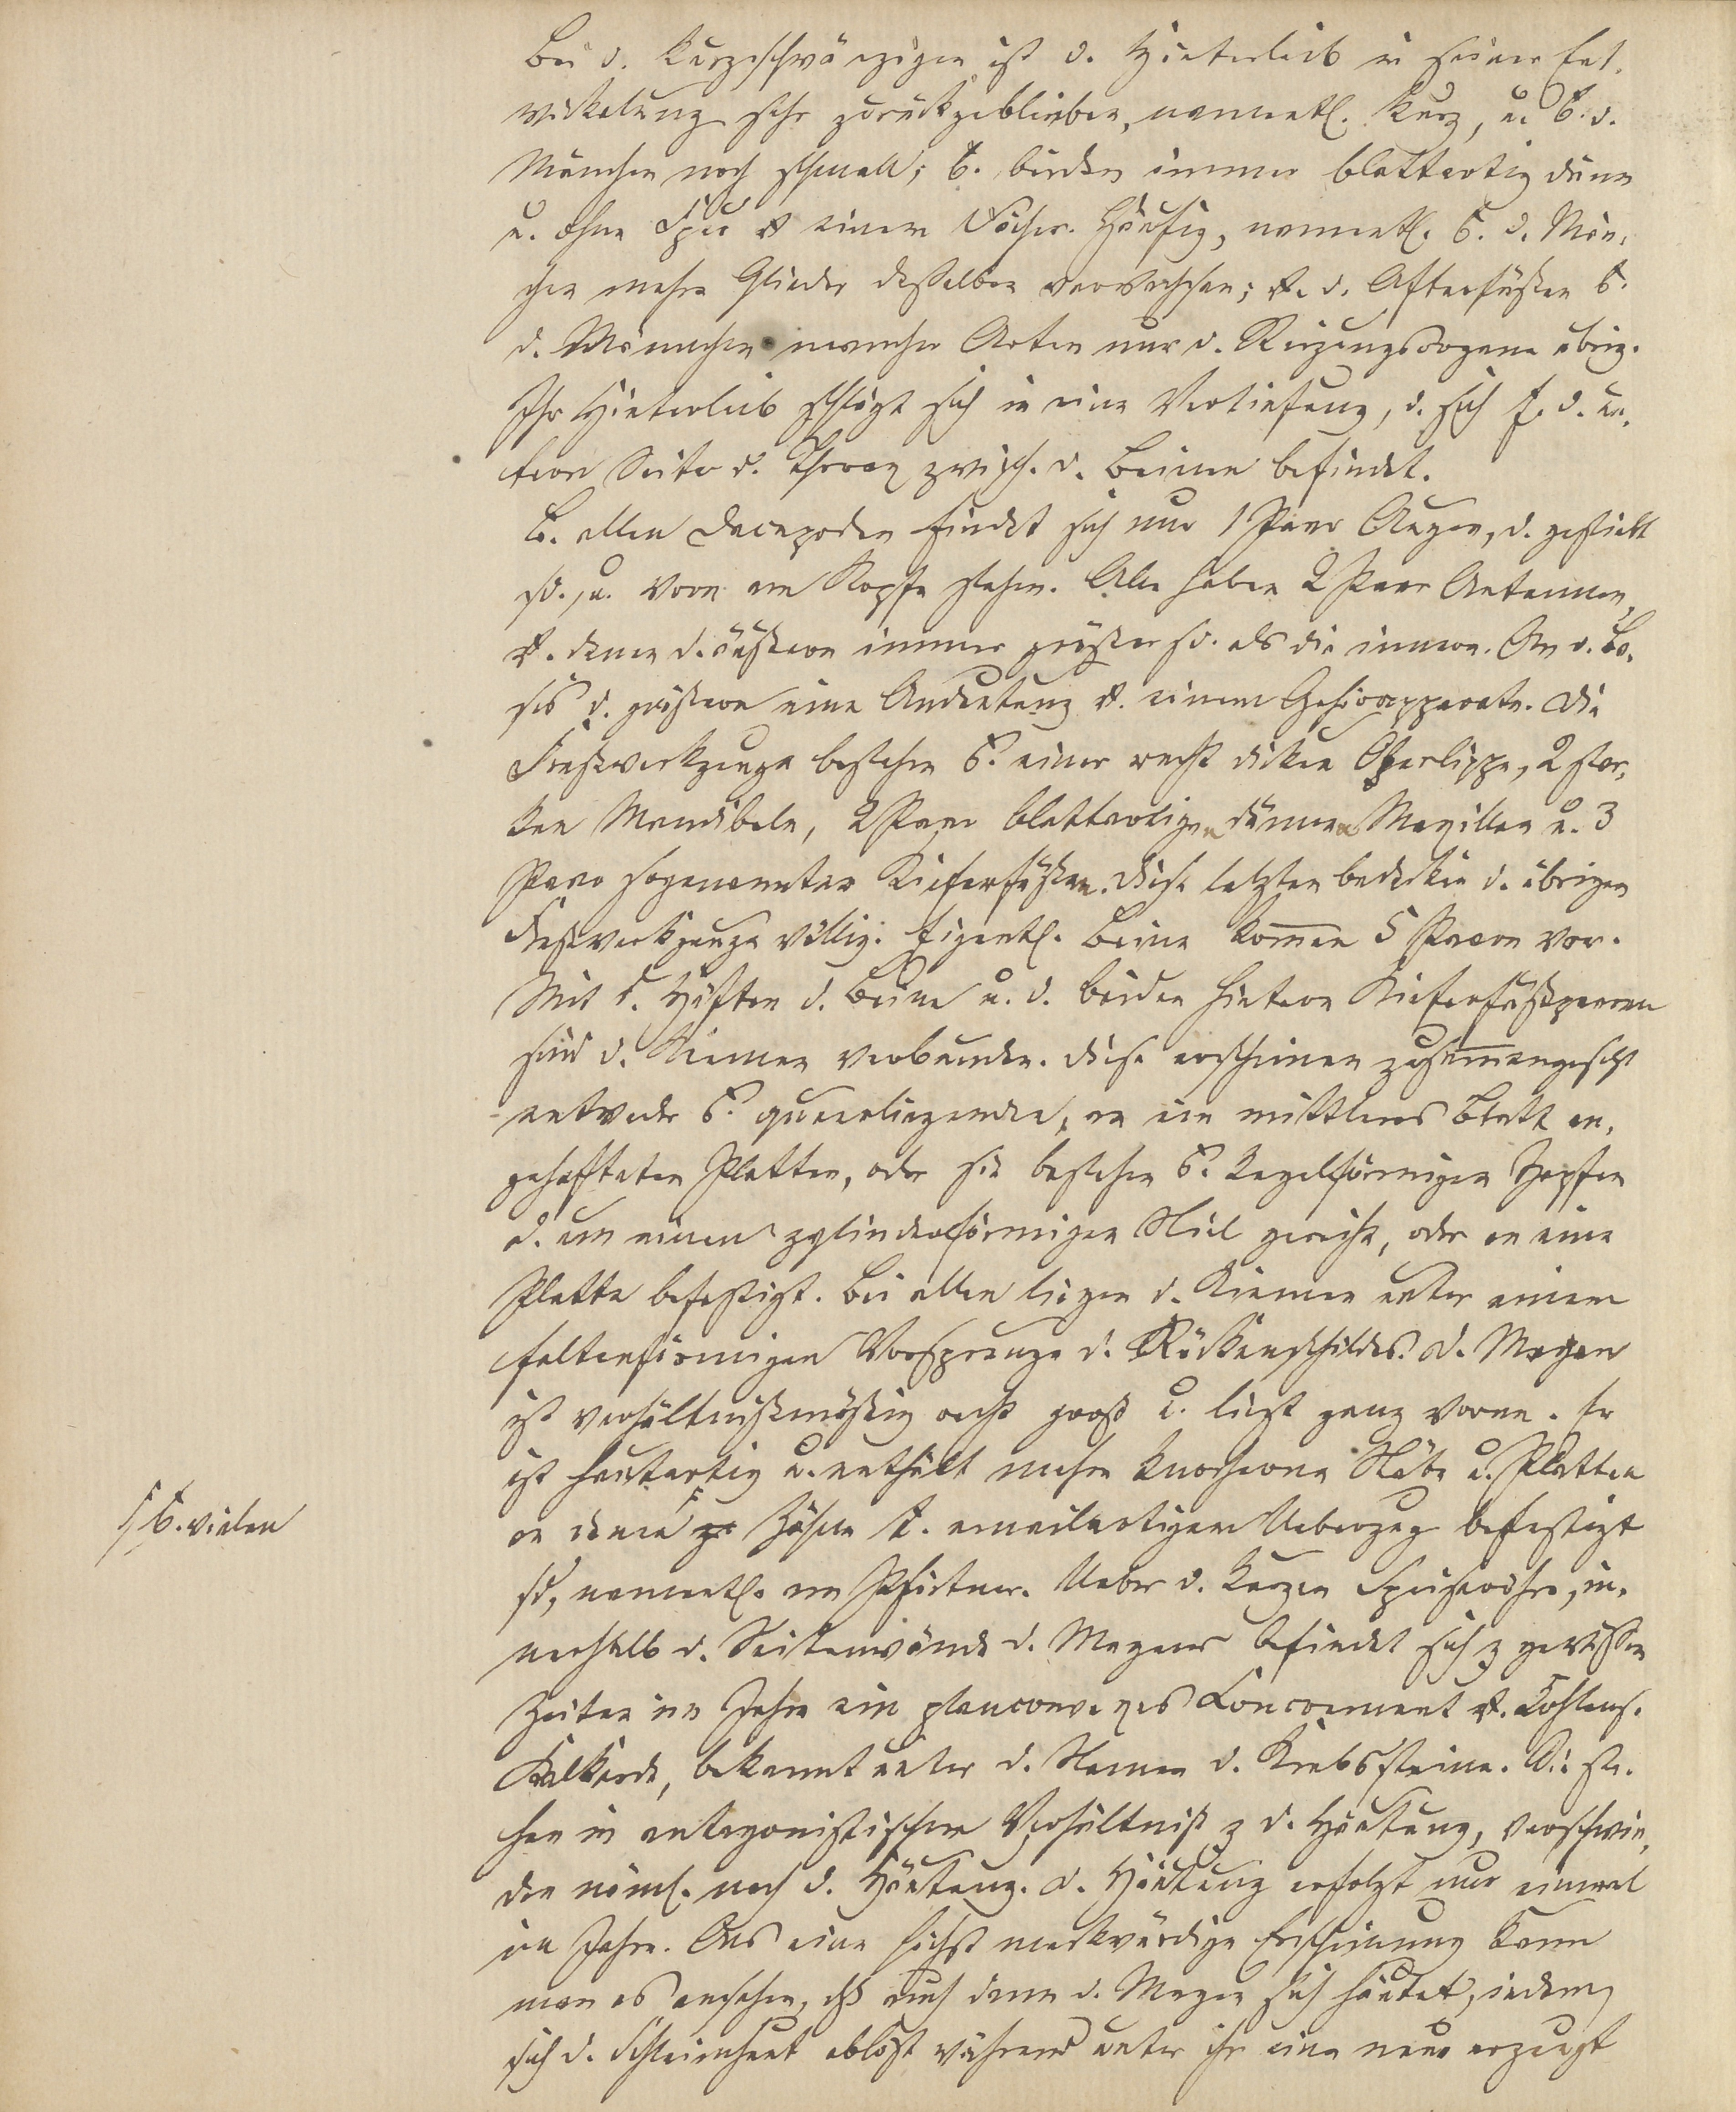 Bei d. Kurzschwänzigen ist d. Hinterleib in seiner Ent-
wickelung sehr zurückgeblieben, namentl. kurz, u. b. d.
Mänchen noch schmall; b. beiden immer blattartig dünn
u. ohne Spur v einem Fächer. Häufig, namentl. b. d. Män-
chen mehre Glieder desselben verwachsen; v. d. Afterfüßen b.
d. Männchen mancher Arten nur d. Reizungsorgane übrig.
Ihr Hinterleib schlägt sich in eine Vertiefung, d. sich f. d. un-
tern Seite d. Thorax zwisch. d. Beinen befindet.
B. allen Decapoden findet sich nur 1 Paar Augen, d. gestielt
sd., u. vorn am Kopfe stehen. Alle haben 2 Paar Antennen,
v. denen d. äußern immer größer sd. als die innern. An d. Ba-
sis d. größern eine Andeutung v. einem Gehörapparate. Die
Freßwerkzeuge bestehen b. einer recht dicken Oberlippe, 2 star-
ken Mandibeln, 2 Paar blattartigen dünnen Maxillen u. 3
Paar sogenannter Kieferfüßen. Diese letzten bedecken d. übrigen
Freßwerkzeuge völlig. Eigentl. Beine kommen 5 Paare vor.
Mit d. Hüften d. Beine u. d. beiden hintern Kieferfußpaaren
sind d. Kiemen verbunden. Diese erscheinen zusammengesetzt
entweder b. querliegenden, an ein mittleres Blatt an-
gehefteten Platten, oder sie bestehen b. kegelförmigen Zapfen
d. um einen zylinderförmigen Stiel gereiht, oder an eine
Platte befestigt. Bei allen liegen d. Kiemen unter einem
faltenförmigen Vorsprunge d. Rückenschildes. D. Magen
ist verhältnißmäßig recht groß u. liegt ganz vorne. Er
ist hautartig u. enthält mehre knochene Stäbe u. Platten
an denen Zähne v. emailartigem Ueberzug befestigt
/ b. vielen
sd, namentl. am Pförtner. Ueber d. kurzen Speiseröhre, in-
nerhalb d. Seitenwände d. Magens befindet sich z gewissen
Zeiten im Jahre ein planconvexes Concrement v. kohlens.
Kalkerde, bekannt unter d. Namen d. Krebssteine. Die ste-
hen in antagonistischem Verhältniß z d. Häutung, verschwin-
den näml. nach d. Häutung. D. Häutung erfolgt nur einmal
im Jahre. Als eine höchst merkwürdige Erscheinung kann
man es ansehen, dß auch dann d. Magen sich häutet, indem
sich d. Schleimhaut ablöst während unter ihr eine neue erzeugt